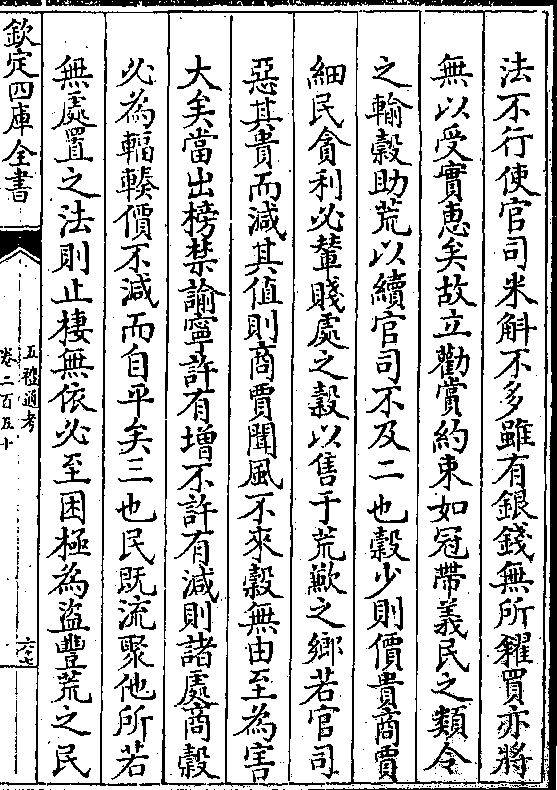 法不行使官司米斛不多雖有銀錢無所糴買亦將
無以受實惠矣故立勸賞約束如冠帶義民之類令
之輸穀助荒以續官司不及二也穀少則價貴商賈
細民貪利必輦賤處之穀以售于荒歉之鄉若官司
惡其貴而減其值則商賈聞風不來穀無由至為害
大矣當出榜禁諭寧許有增不許有減則諸處商穀
必為輻輳價不減而自平矣三也民既流聚他所若
無處置之法則止棲無依必至困極為盜豐荒之民
欽定四庫全書
五禮通考
卷二百五十
六十七